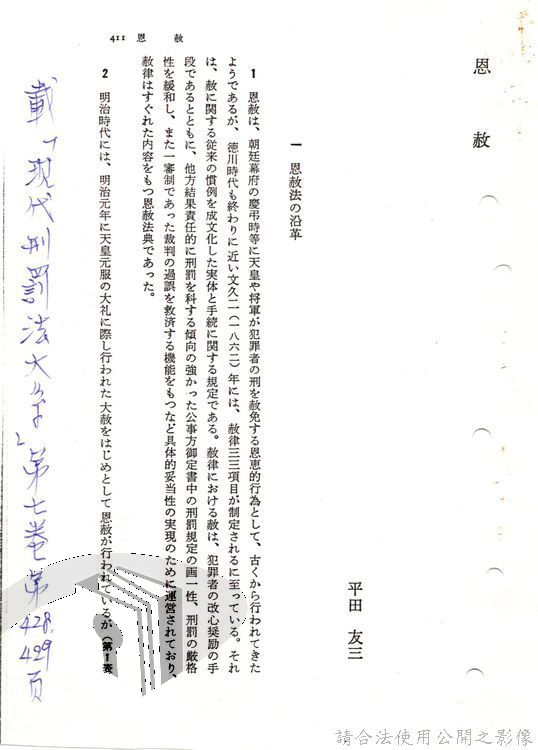 411 恩　赦
恩　赦
平田　友三
一　恩赦法の沿革
1　恩赦は、朝廷幕府の慶弔時等に天皇や将軍が犯罪者の刑を赦免する恩恵的行為として、古くから行われてきた
ようであるが、徳川時代も終わりに近い文久二（一八六二）年には、赦律三三項目が制定されるに至っている。それ
は、赦に関する従来の慣例を成文化した実体と手続に関する規定である。赦律における赦は、犯罪者の改心奨励の手
段であるとともに、他方結果責任的に刑罰を科する傾向の強かった公事方御定書中の刑罰規定の画一性、刑罰の厳格
性を緩和し、また一審制であった裁判の過誤を救済する機能をもつなど具体的妥当性の実現のために運営されており、
赦律はすぐれた内容をもつ恩赦法典であった。
2　明治時代には、明治元年に天皇元服の大礼に際し行われた大赦をはじめとして恩赦が行われているが（第1表
載「現代刑罰法大系」第七巻第428,429頁
請合法使用公開之影像